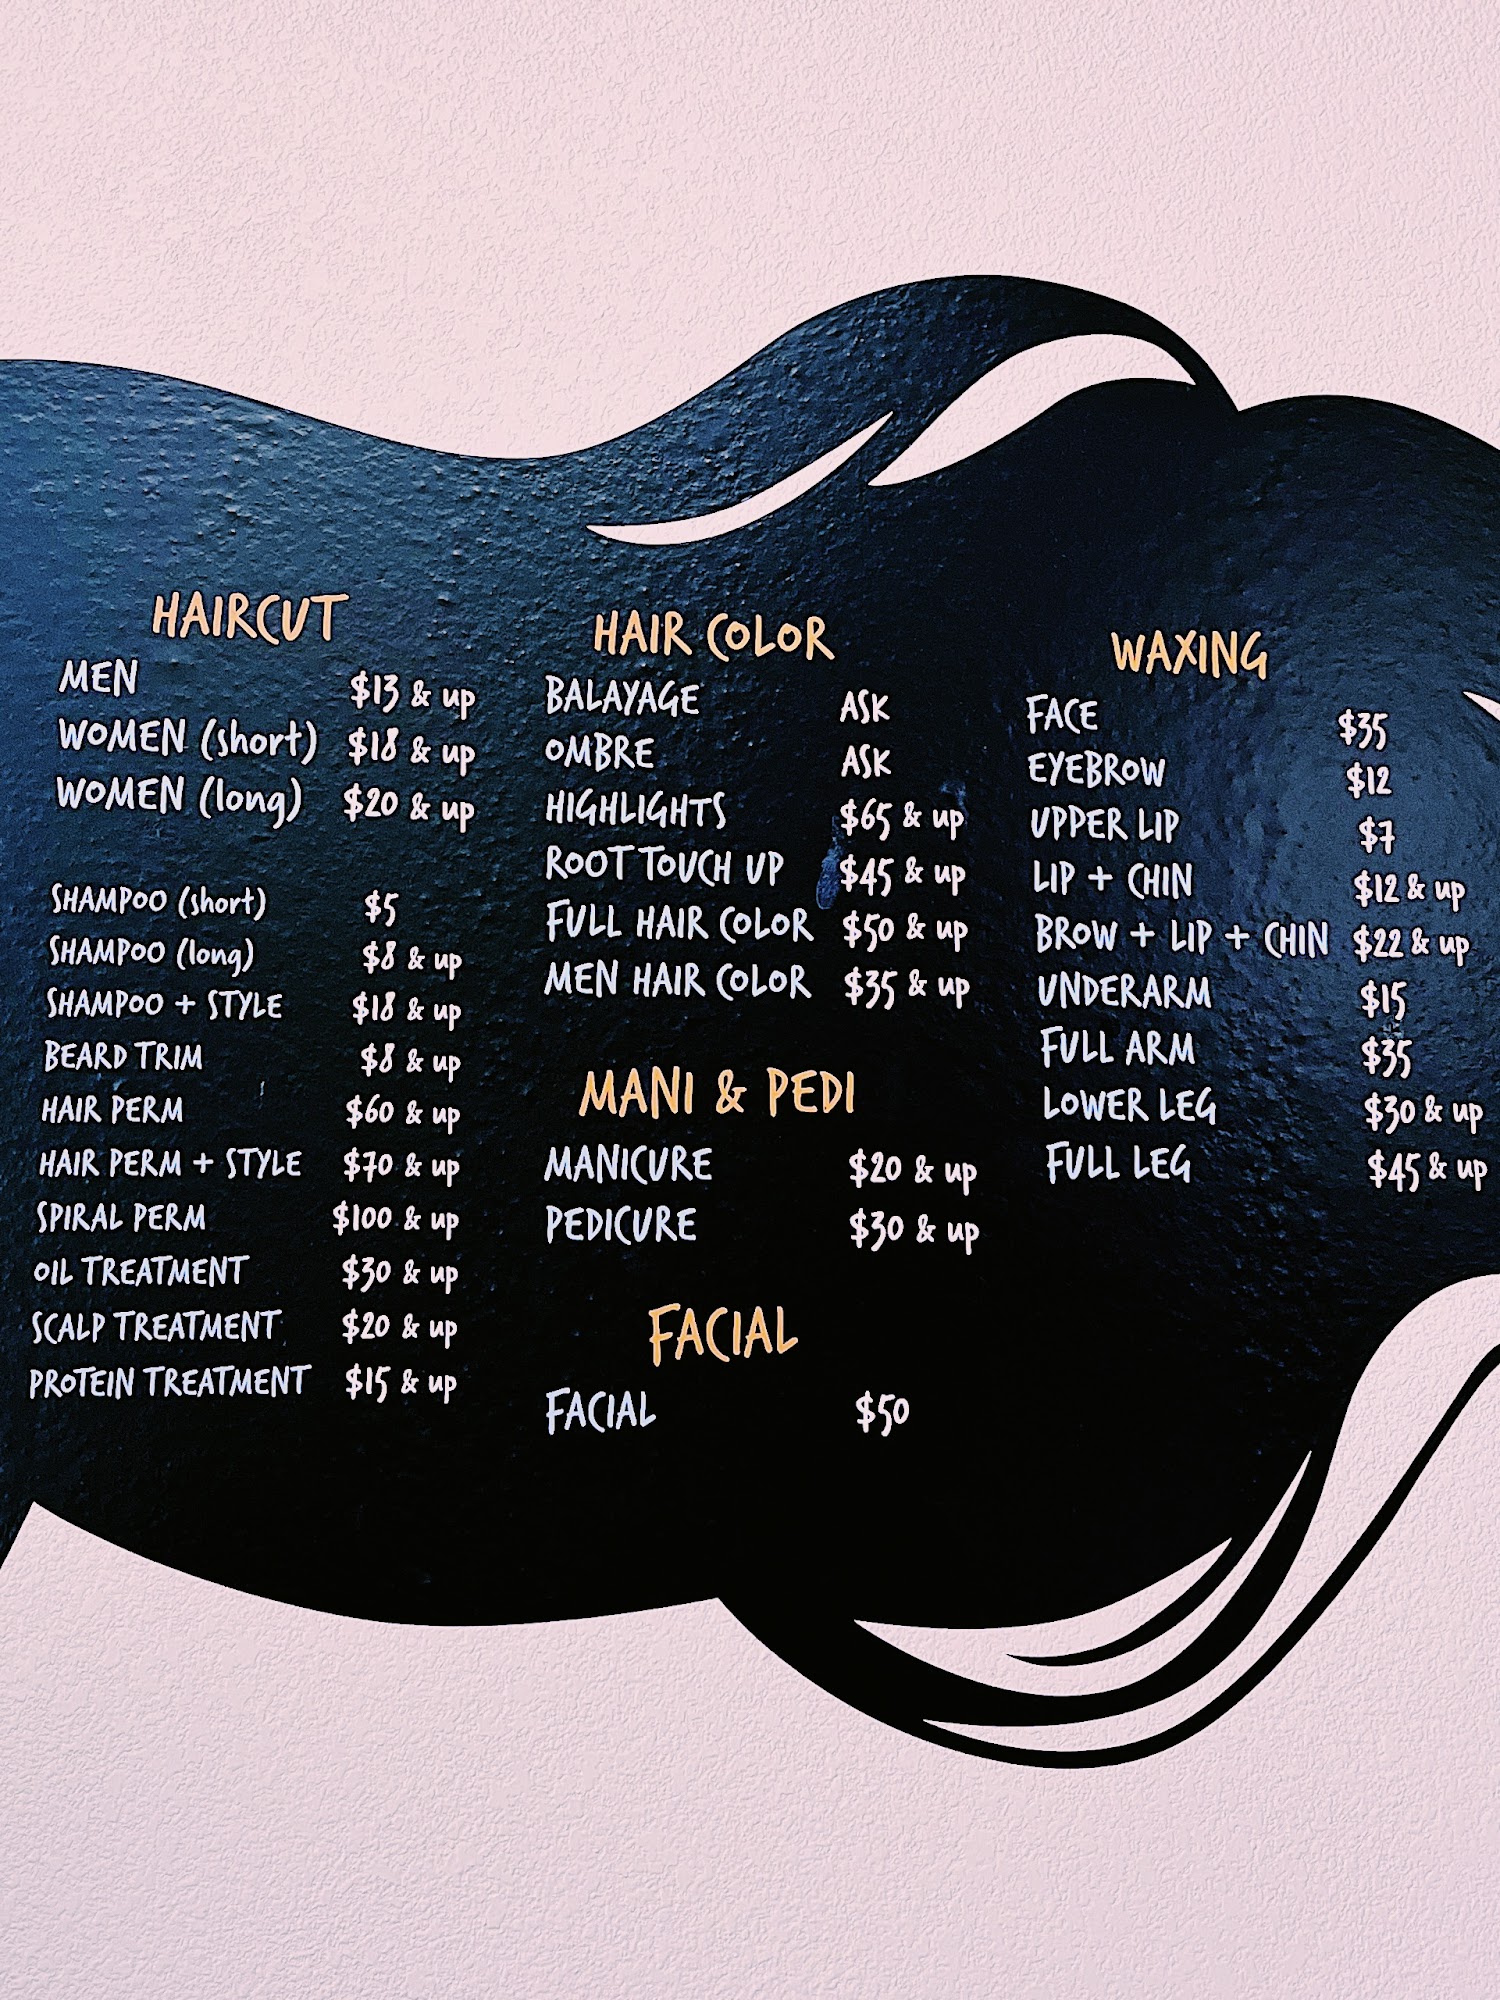 HAIRCUT
MEN $13 & up
WOMEN (short) $18 & up
WOMEN (long) $20 & up
SHAMPOO (short) $5
SHAMPOO (long) $8 & up
SHAMPOO + STYLE $18 & up
BEARD TRIM $8 & up
HAIR PERM $60 & up
HAIR PERM + STYLE $70 & up
SPIRAL PERM $100 & up
OIL TREATMENT $30 & up
SCALP TREATMENT $20 & up
PROTEIN TREATMENT $15 & up
HAIR COLOR
BALAYAGE ASK
OMBRE ASK
HIGHLIGHTS $65 & up
ROOT TOUCH UP $45 & up
FULL HAIR COLOR $50 & up
MEN HAIR COLOR $35 & up
MANI & PEDI
MANICURE $20 & up
PEDICURE $30 & up
FACIAL
FACIAL $50
WAXING
FACE $35
EYEBROW $12
UPPER LIP $7
LIP + CHIN $12 & up
BROW + LIP + CHIN $22 & up
UNDERARM $15
FULL ARM $35
LOWER LEG $30 & up
FULL LEG $45 & up